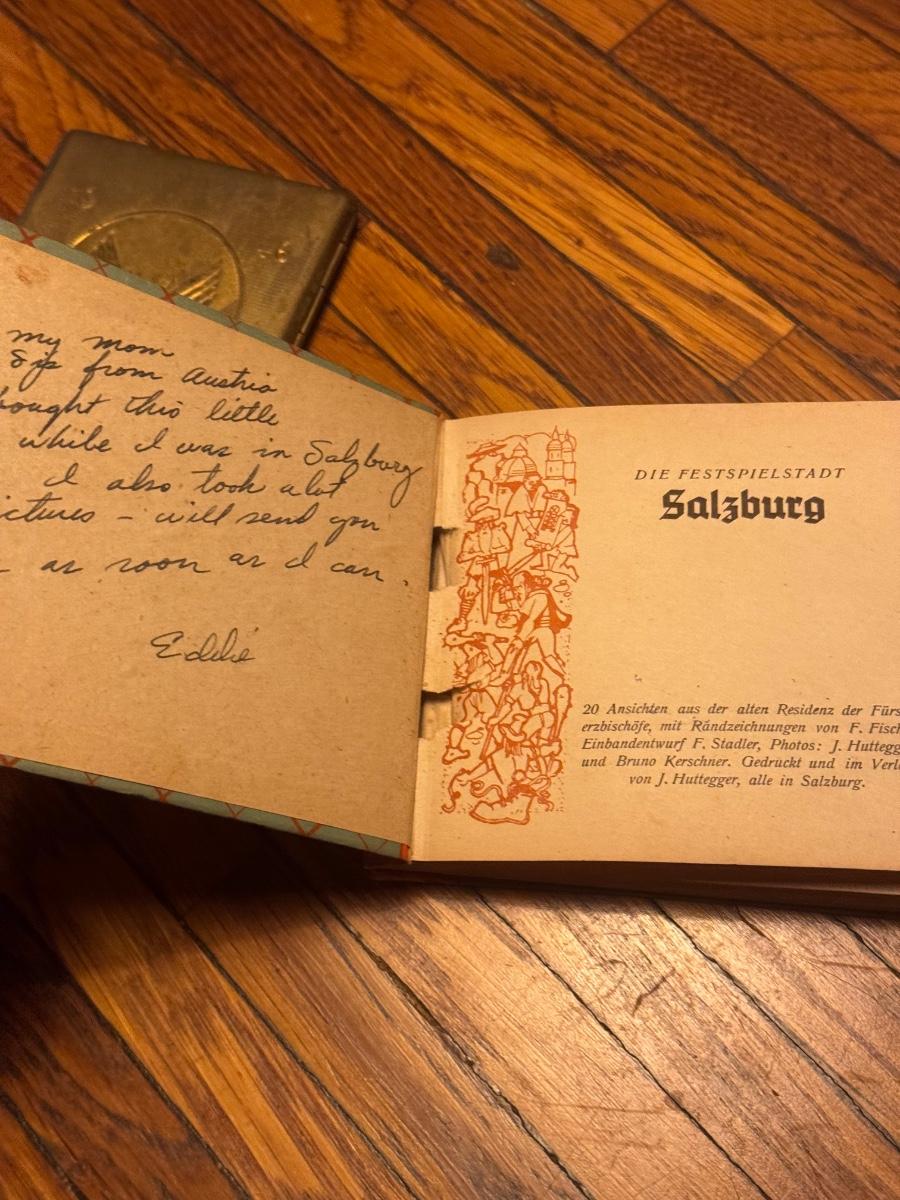 my mom
& Sis from Austria
bought this little
while I was in Salzburg
I also took alot
ictures – will send you
as soon as I can.
Eddie
DIE FESTSPIELSTADT
Salzburg
20 Ansichten aus der alten Residenz der Fürs
erzbischöfe, mit Rändzeichnungen von F. Fisch
Einbandentwurf F. Stadler, Photos: J. Huttegg
und Bruno Kerschner. Gedruckt und im Verla
von J. Huttegger, alle in Salzburg.